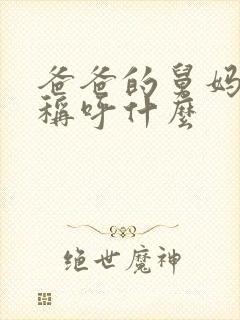 爸爸的舅妈
稱呼什麼
绝世魔神